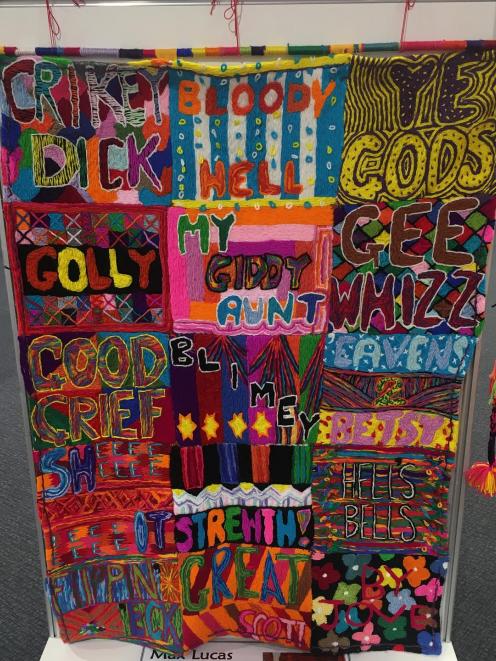 CRIKEY
DICK
BLOODY
HELL
YE
GODS
GOLLY
MY
GIDDY
AUNT
GEE
WHIZZ
GOOD
GRIEF
BLIMEY
'EAVENS
BETSY
SHEEEE
EEEE
EEEE
EEEE IT
STREWTH!
HELLS
BELLS
FLIPPIN
'ECK
GREAT
SCOTT
BY
JOVE
Max Lucas